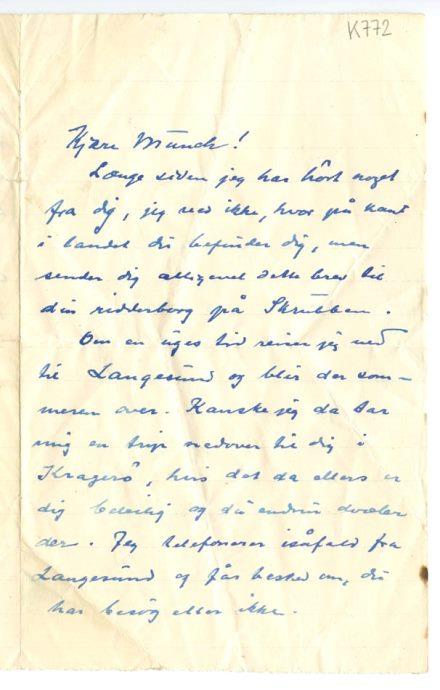 K772
Kjære Munch!
Længe siden jeg har hørt noget
fra dig, jeg ved ikke, hvor på kant
i landet du befinder dig, men
sender dig alligevel dette brev til
din ridderborg på Skrubben.
Om en uges tid reiser jeg ned
til Langesund og blir der som-
meren over. Kanske jeg da tar
mig en trip nedover til dig i
Kragerö, hvis det da ellers er
dig beleilig og du endnu dvæler
der. Jeg telefonerer isåfald fra
Langesund og får besked om, du
har besøg eller ikke.